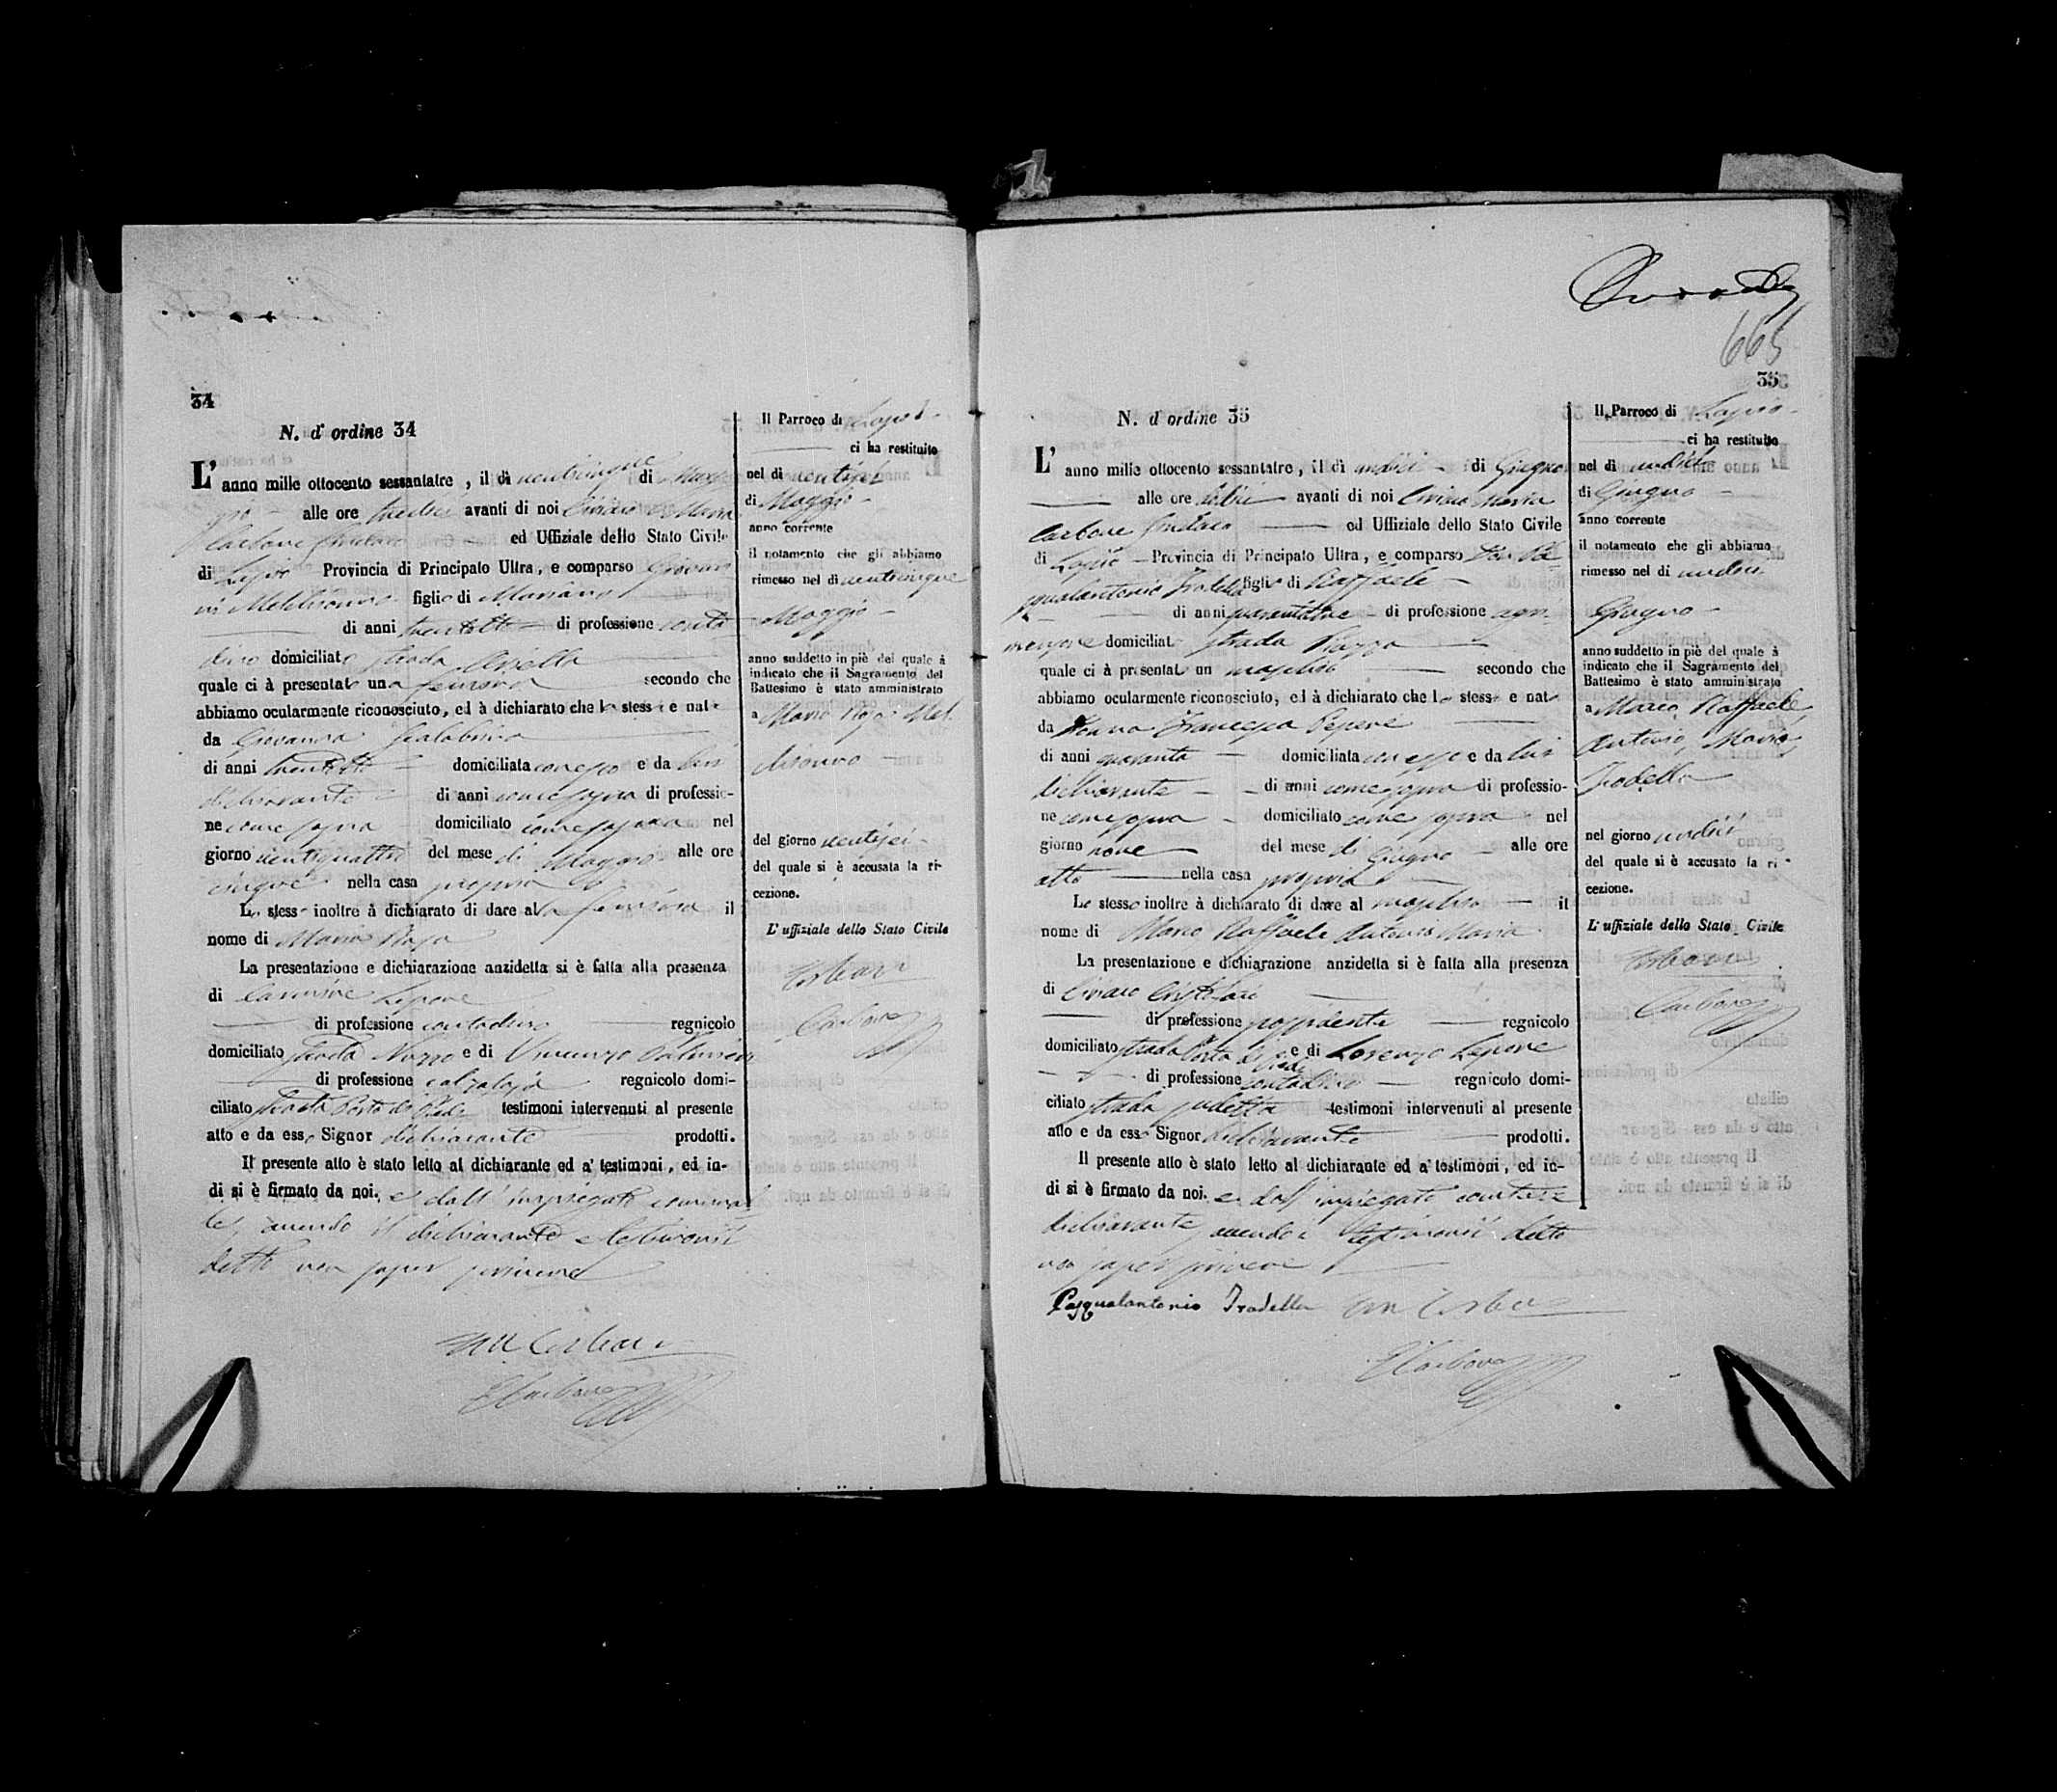 34
N. d' ordine 34
L' anno mille ottocento sessantatre, il dì venticinque di Mag-
gio alle ore avanti di noi Ciriaco Maria
Carbone Sindaco ed Uffiziale dello Stato Civile
di Lapio Provincia di Principato Ultra, e comparso Giovan-
ni figlio di Mariano
di anni trentotto di professione conta-
dino domiciliato strada
quale ci à presentato una femina secondo che
abbiamo ocularmente riconosciuto, ed à dichiarato che la stessa è nata
da Giovanna
di anni domiciliata con esso e da lui
dichiarante di anni come sopra di professio-
ne come sopra domiciliato come sopra nel
giorno ventiquattro del mese di Maggio alle ore
cinque nella casa propria
Lo stesso inoltre à dichiarato di dare alla femina il
nome di Maria Rosa
La presentazione e dichiarazione anzidetta si è fatta alla presenza
di Carmine Lepore
di professione contadino regnicolo
domiciliato strada Nuzzo e di Vincenzo
di professione calzolajo regnicolo domi-
ciliato strada Porta di testimoni intervenuti al presente
atto e da esso Signor dichiarante prodotti.
Il presente atto è stato letto al dichiarante ed a' testimoni, ed in-
di si è firmato da noi. e dall' impiegato comuna-
le, avendo il dichiarante e testimonii
detto non saper scrivere
Carbone
Il Parroco di Lapio
ci ha restituito
nel di ventisei
di Maggio
anno corrente
il notamento che gli abbiamo
rimesso nel di venticinque
Maggio
anno suddetto in piè del quale à
indicato che il Sagramento del
Battesimo è stato amministrato
a Maria Rosa Mel-
del giorno ventisei
del quale si è accusata la ri-
cezione.
L' uffiziale dello Stato Civile
Carbone
665
35
N. d' ordine 35
L' anno mille ottocento sessantatre, il di undici di Giugno
alle ore avanti di noi Ciriaco Maria
Carbone Sindaco ed Uffiziale dello Stato Civile
di Lapio Provincia di Principato Ultra, e comparso Don Pa-
squalantonio Fradella figlio di Raffaele
di anni quarantatre di professione agri-
mensore domiciliato strada Piazza
quale ci à presentato un maschio secondo che
abbiamo ocularmente riconosciuto, ed à dichiarato che lo stesso e nato
da Donna Francesca Pepere
di anni quaranta domiciliata con esso e da lui
dichiarante di anni come sopra di professio-
ne come sopra domiciliato come sopra nel
giorno nove del mese di Giugno alle ore
otto nella casa propria
Lo stesso inoltre à dichiarato di dare al maschio il
nome di Marco Raffaele Antonio Maria
La presentazione e dichiarazione anzidetta si è fatta alla presenza
di Ciriaco
di professione possidente regnicolo
domiciliato strada Porta di e di Lorenzo Lepore
di professione contadino regnicolo domi-
ciliato strada testimoni intervenuti al presente
atto e da esso Signor dichiarante prodotti.
Il presente atto è stato letto al dichiarante ed a' testimoni, ed in-
di si è firmato da noi. e dall' impiegato
dichiarante avendo i testimonii detto
non saper scrivere
Pasqualantonio Fradella
Carbone
Il Parroco di Lapio
ci ha restituito
nel di undici
di Giugno
anno corrente
il notamento che gli abbiamo
rimesso nel di undici
Giugno
anno suddetto in piè del quale à
indicato che il Sagramento del
Battesimo è stato amministrato
a Marco Raffaele
Antonio Maria
Fradella
nel giorno undici
del quale si è accusata la ri-
cezione.
L' uffiziale dello Stato Civile
Carbone